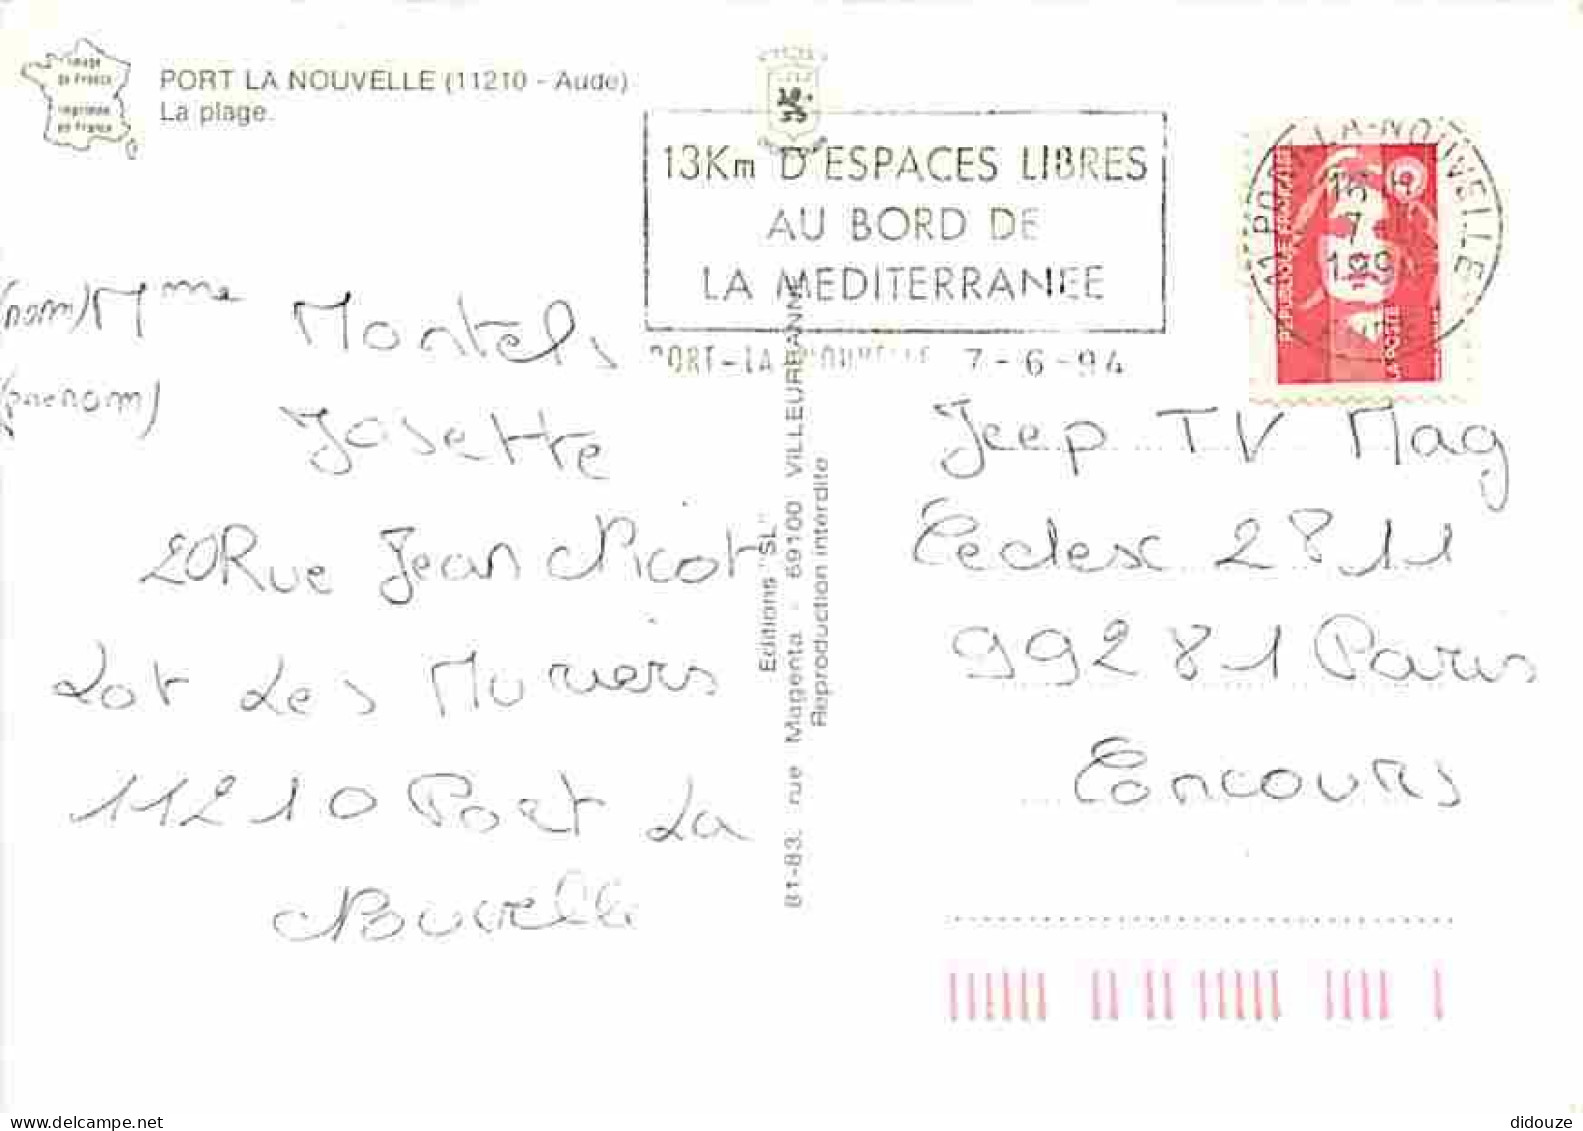 Image
de France
imprimée
en France
PORT LA NOUVELLE (11210 - Aude)
La plage.
13Km D'ESPACES LIBRES
AU BORD DE
LA MEDITERRANEE
PORT-LA-NOUVELLE 7-6-94
11 PORT-LA-NOUVELLE
16 H
7
199
REPUBLIQUE FRANÇAISE
LA POSTE
(nom) Mme Montels
(prenom) Josette
20 Rue Jean Nicot
Lot Les Muriers
11210 Port La
Nouvelle
Editions "SL"
81-83, rue Magenta - 69100 VILLEURBANNE
Reproduction interdite
Jeep TV Mag
Cedex 2811
99281 Paris
Concours
didouze